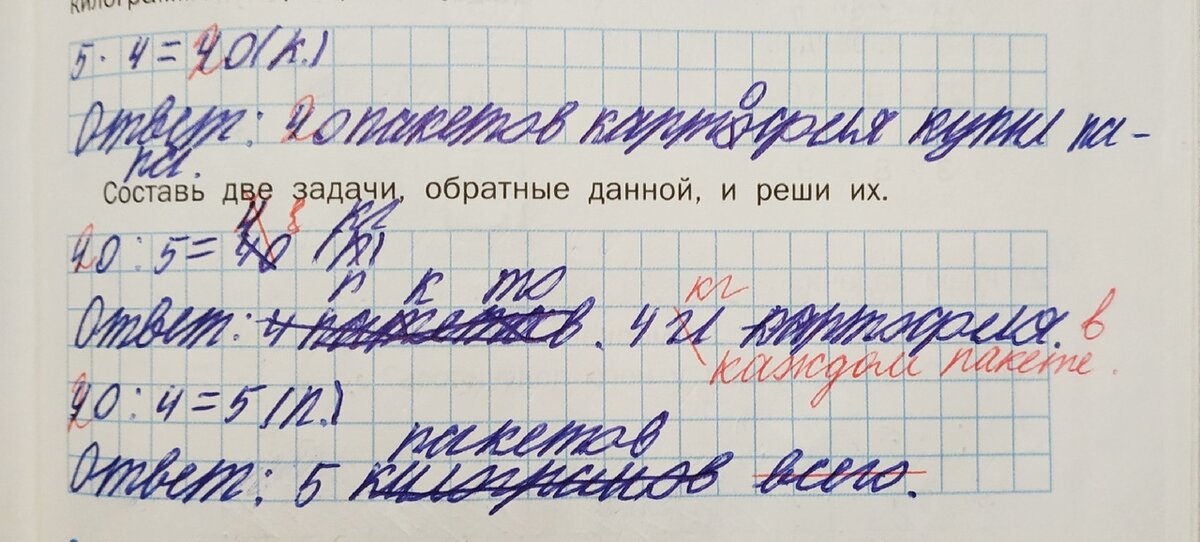 5 · 4 = 20 (к.)
Ответ: 20 пакетов картофеля купил па-
па.
Составь две задачи, обратные данной, и реши их.
4 кг
20 : 5 =
п к то
Ответ: 4 пакетов. 4 кг картофеля. в
каждом пакете.
20 : 4 = 5 (п.)
пакетов
Ответ: 5 килограмов всего.